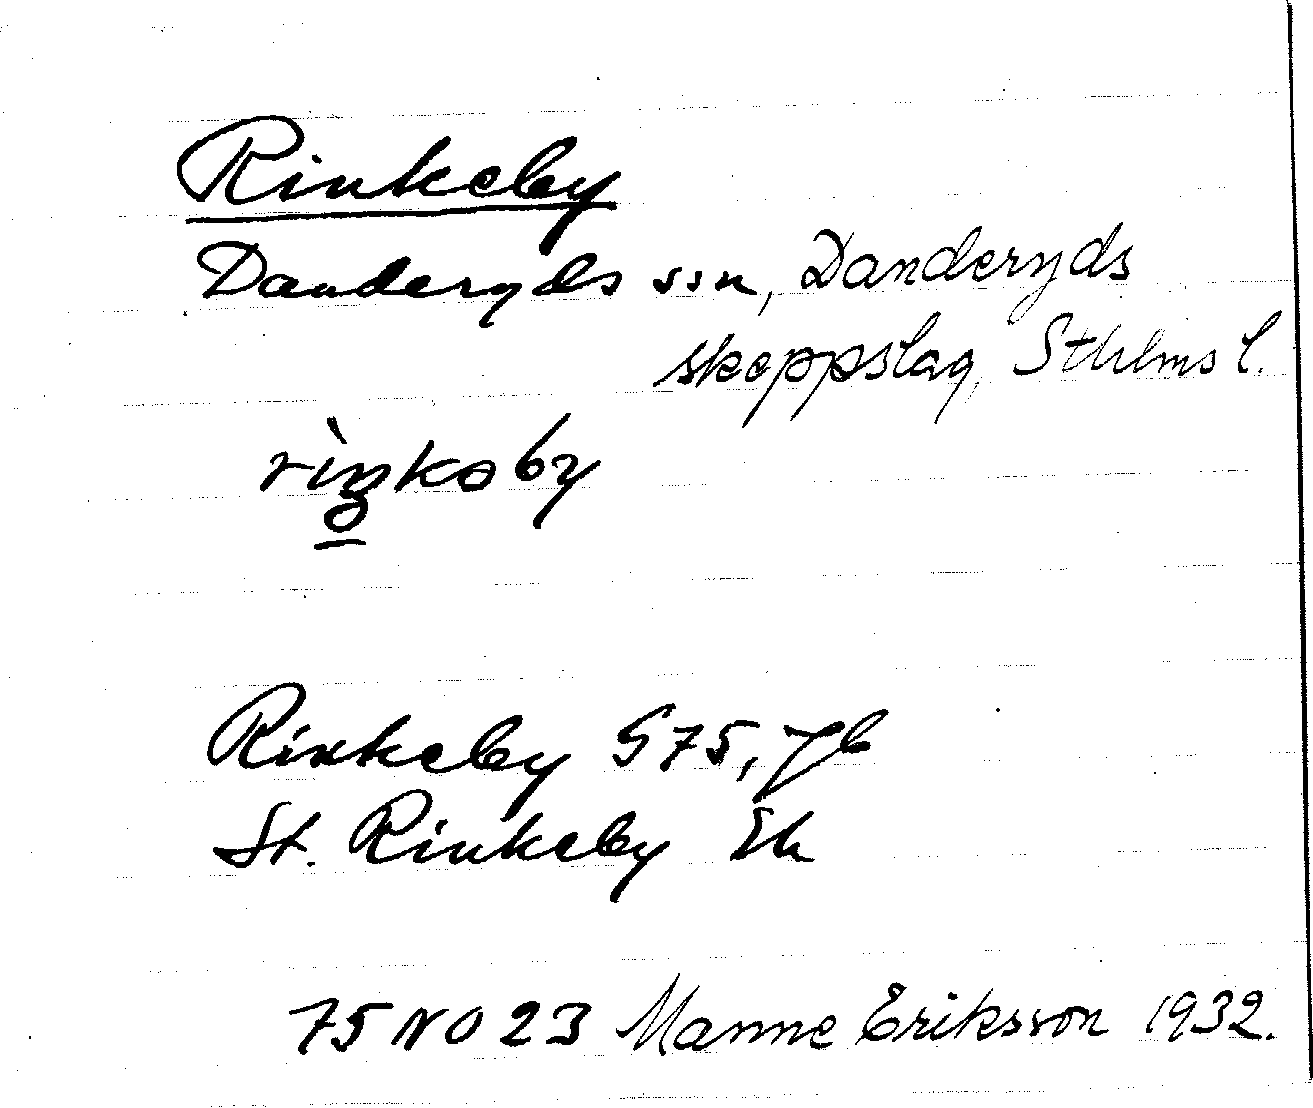 Rinkeby
Danderyds ssn, Danderyds
skeppslag, Sthlms l.
rìŋkəby
Rinkeby G75, Jb
St. Rinkeby Ek
75 NO 23 Manne Eriksson 1932.